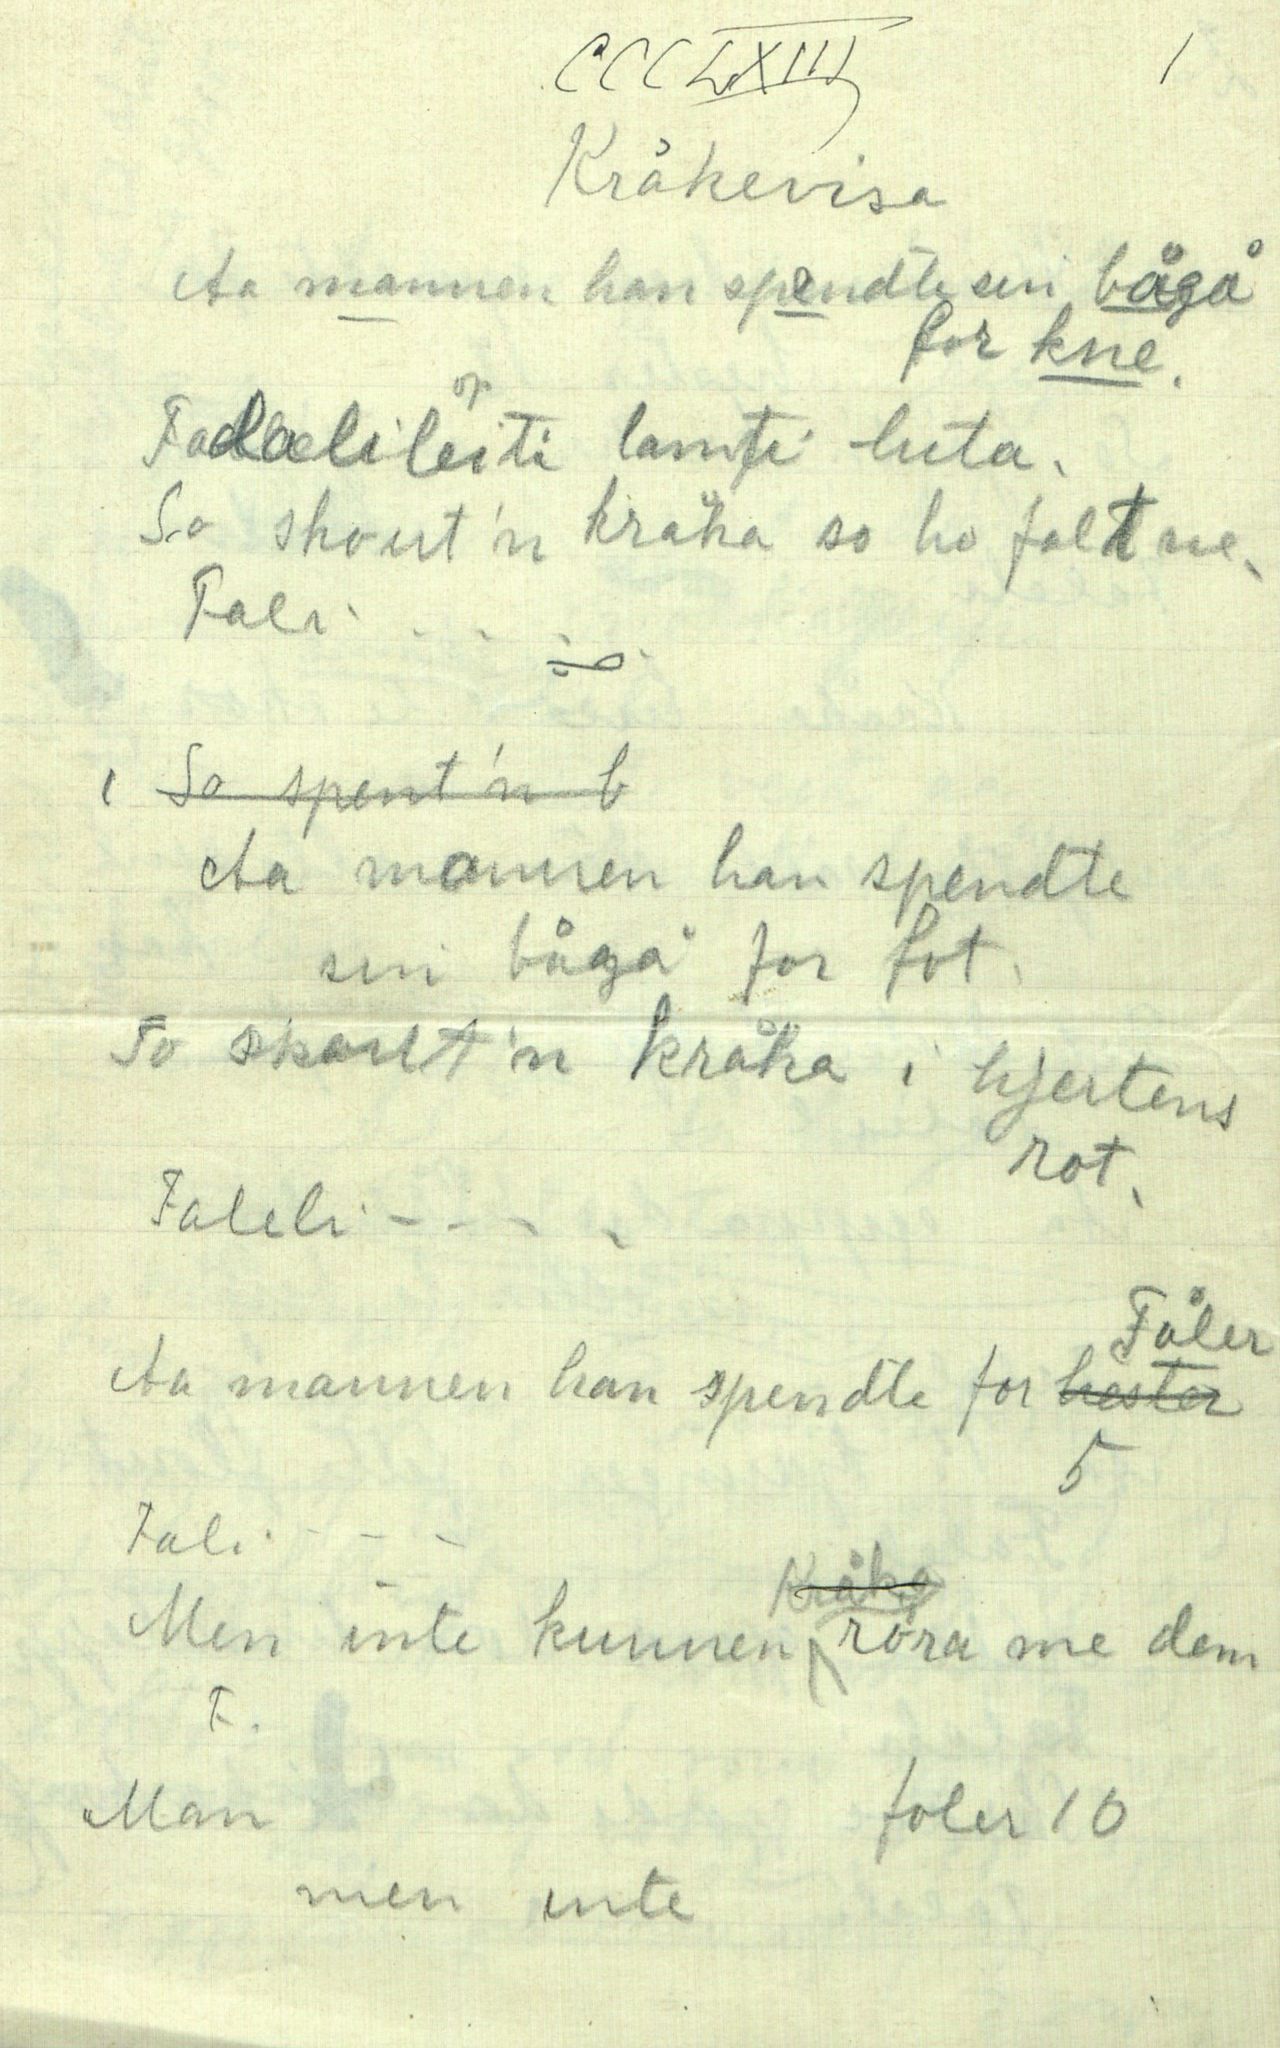 CCCLXIII 1
Kråkevisa
Aa mannen han spendte sin bågå
for kne.
lamti luta.
So skout'n kråka so ho falt ne.
Fali . . . .
1 So spent'n b
Aa mannen han spendte
sin bågå for fot.
So skout'n kråka i hjertens
rot.
Faleli - - - -
Fåler
Aa mannen han spendte for hester
5
Fali - - -
Kråka
Men inte kunnen röra me dem
F.
Man foler 10
men inte